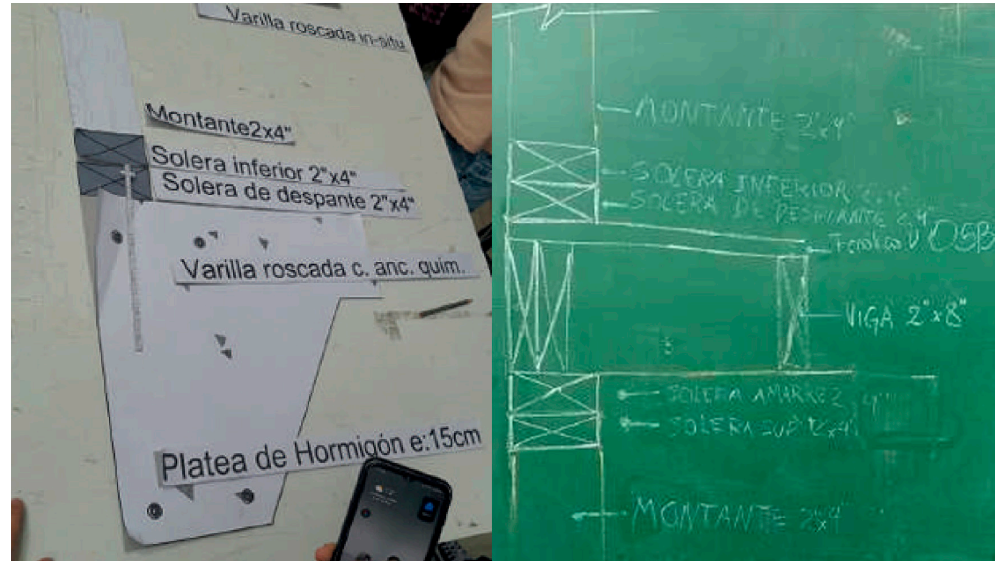 Varilla roscada in-situ
Montante2x4"
Solera inferior 2"x4"
Solera de despante 2"x4"
Varilla roscada c. anc. quim.
Platea de Hormigón e:15cm
MONTANTE 2"x4"
SOLERA INFERIOR
SOLERA DE
OSB
VIGA 2"x8"
SOLERA AMARRE
SOLERA SUP 2"x4"
MONTANTE 2x4"